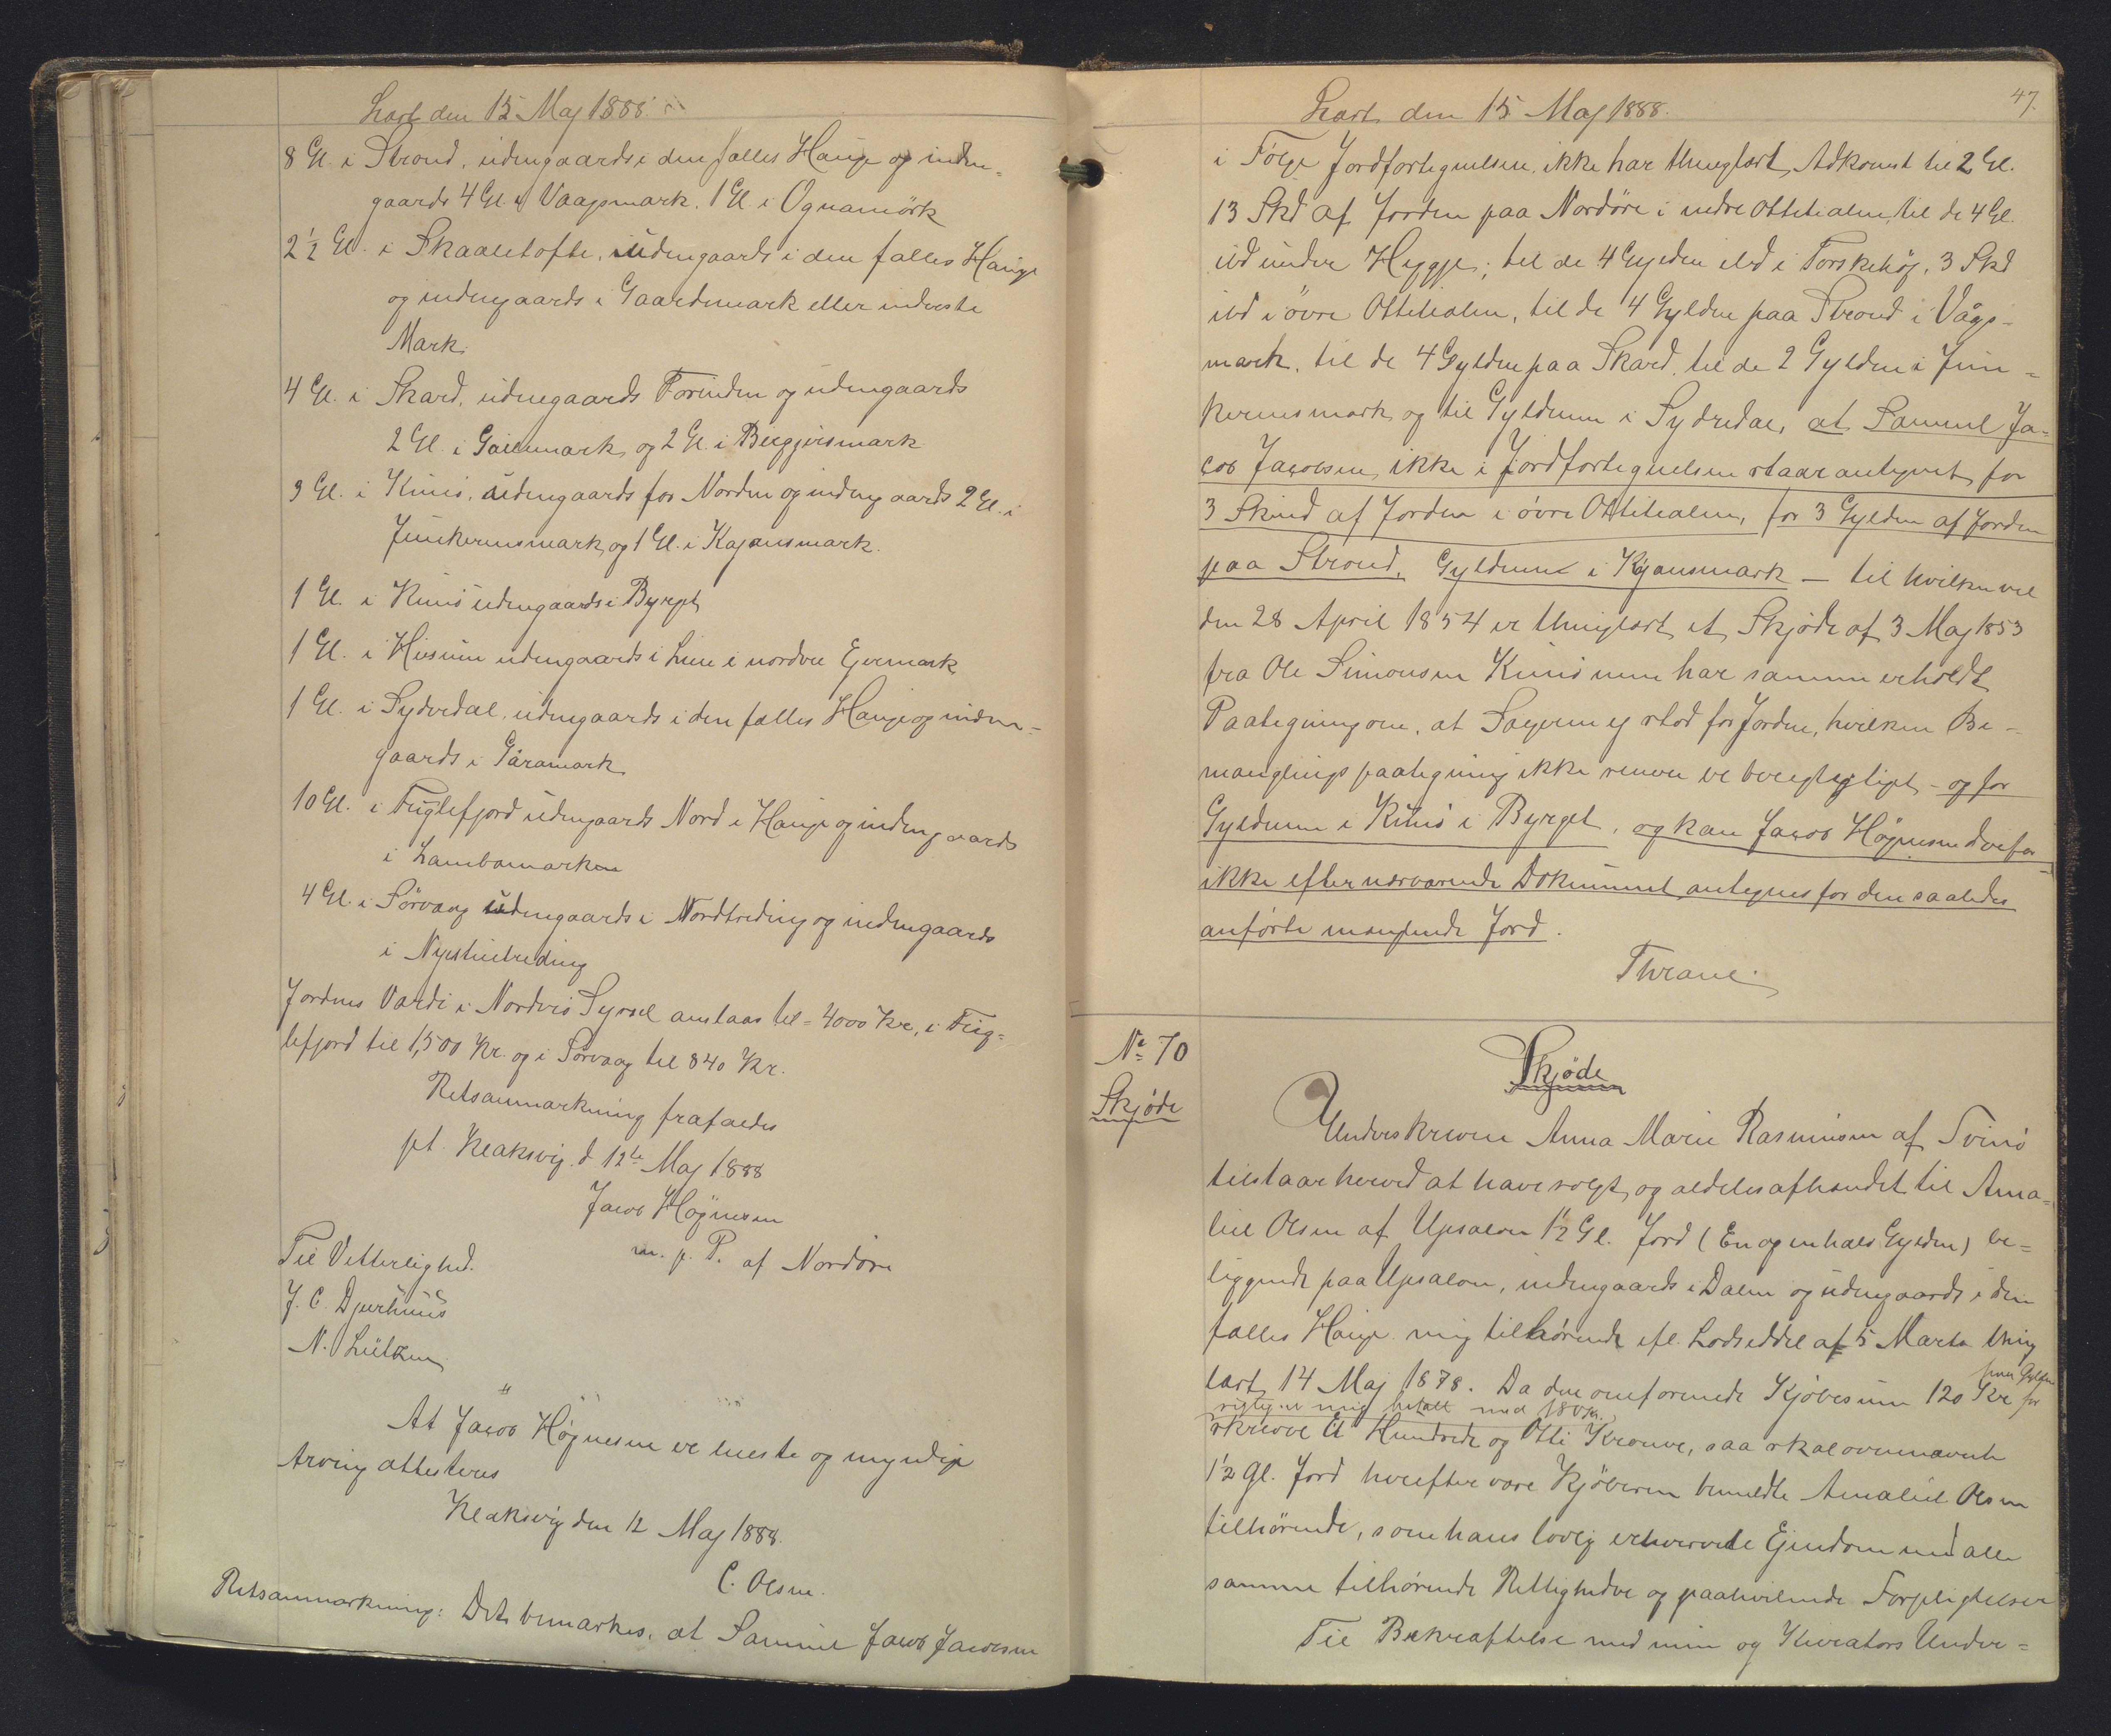 Læst den 15 Maj 1888.
8 Gl. i Strond, udengaards i den fælles Hauge og inden-
gaards 4 Gl. i Vaagsmark. 1 Gl. i Ognamörk
2 1/2 Gl. i Skaaletofte, udengaards i den fælles Hauge
og indengaards i Gaardsmark eller inderste
Mark.
4 Gl. i Skard, udengaards Forinden og indengaards
2 Gl. i Gailsmark og 2 Gl. i Byggjrismark
3 Gl. i Kunö, udengaards for Norden og indengaards 2 Gl. i
Junkerensmark og 1 Gl. i Kajansmark.
1 Gl. i Kunö udengaards i Byrget
1 Gl. i Husum udengaards i Lun i nordre Ejermark
1 Gl. i Sydredal, udengaards i den fælles Hauge og inden-
gaards i Gåramark
10 Gl. i Fuglefjord udengaards Nord i Hauge og indengaards
i Lambamarken
4 Gl. i Sörvaag udengaards i Nordtreding og indengaards
i Nyestuetreding
Jordens Værdi i Norderø Syssel anslaas til = 4000 Kr, i Fug-
lefjord til 1,500 Kr. og i Sörvaag til 840 Kr.
Retsanmærkning frafaldes
pt. Klaksvig d 12te Maj 1888
Jacob Högnesen
m. p. P. af Nordöre
Til Vitterlighed.
J. C. Djurhuus
N. Lützen
At Jacob Högnesen er eneste og myndige
Arving attesteres
Klaksvig den 12 Maj 1888.
C. Olsen.
Retsanmærkning: Det bemærkes, at Samuel Jacob Jacobsen
47.
Læst den 15 Maj 1888.
i Følge Jordfortegnelsen, ikke har thinglæst Adkomst til 2 Gl.
13 Skd af Jorden paa Nordöre i nedre Ottetialen, til de 4 Gl.
ibd under Heygge; til de 4 Gylden ibd i Torskehöj, 3 Skd
ibd i övre Ottetialen, til de 4 Gylden paa Strond i Vågs-
mark, til de 4 Gylden paa Skard, til de 2 Gylden i Jun-
kerensmark og til Gyldenen i Sydredal, at Samuel Ja-
cob Jacobsen ikke i Jordfortegnelsen staar antegnet for
3 Skind af Jorden i övre Ottetialen, for 3 Gylden af Jorden
paa Strond, Gyldenen i Kajansmark – til hvilken vel
den 28 April 1854 er thinglæst et Skjöde af 3 Maj 1853
fra Ole Simonsen Kunö men har samme erholdt
Paategning om, at Sælgeren ej stod for Jorden, hvilken Be-
manglingspaategning ikke senere er berigtigtiget – og for
Gyldenen i Kunö i Byrget, og kan Jacob Högnesen derfor
ikke efter nærværende Dokument antegnes for den saaledes
anförte manglende Jord.
Thrane.
No 70
Skjöde
Skjöde
Underskreven Anna Marie Rasmusen af Svinö
tilstaar herved at have solgt og aldeles afhændet til Ama-
liel Olsen af Upsalon 1 1/2 Gl. Jord (En og en halv Gylden) be-
liggende paa Upsalon, indengaards i Dalen og udengaards i den
fælles Hauge mig tilhörende efl. Lodseddel af 5 Marts thing
læst 14 Maj 1878. Da den omforenede Kjöbesum 120 Kr for
hver Gylden
rigtig er mig betalt med 180 Kr.
skrive Et Hundrede og Otti Kroner, saa skal ovennævnte
1 1/2 Gl. Jord herefter være Kjöberen bemeldte Amaliel Olsen
tilhörende, som hans lovlig erhvervede Ejendom med alle
samme tilhörende Rettigheder og paahvilende Forpligtelser
Til Bekræftelse med min og Kurators Under-